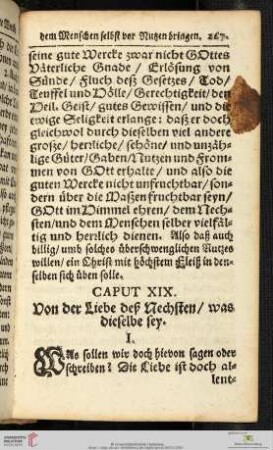 dem Menschen selbst vor Nutzen bringen. 267.
seine gute Wercke zwar nicht GOttes
Väterliche Gnade / Erlösung von
Sünde / Fluch deß Gesetzes / Tod /
Teuffel und Hölle / Gerechtigkeit / den
Heil. Geist / gutes Gewissen / und die
ewige Seligkeit erlange: daß er doch
gleichwol durch dieselben viel andere
große / herrliche / schöne / und unzäh-
lige Güter / Gaben / Nutzen und From-
men von GOtt erhalte / und also die
guten Wercke nicht unfruchtbar / son-
dern über die Maßen fruchtbar seyn /
GOtt im Himmel ehren / dem Nech-
sten / und dem Menschen selber vielfäl-
tig und herrlich dienen. Also daß auch
billig / umb solches überschwenglichen Nutzes
willen / ein Christ mit höchstem Fleiß in den-
selben sich üben solle.
CAPUT XIX.
Von der Liebe deß Nechsten / was
dieselbe sey.
I.
WAs sollen wir doch hievon sagen oder
schreiben? Die Liebe ist doch al-
lent-